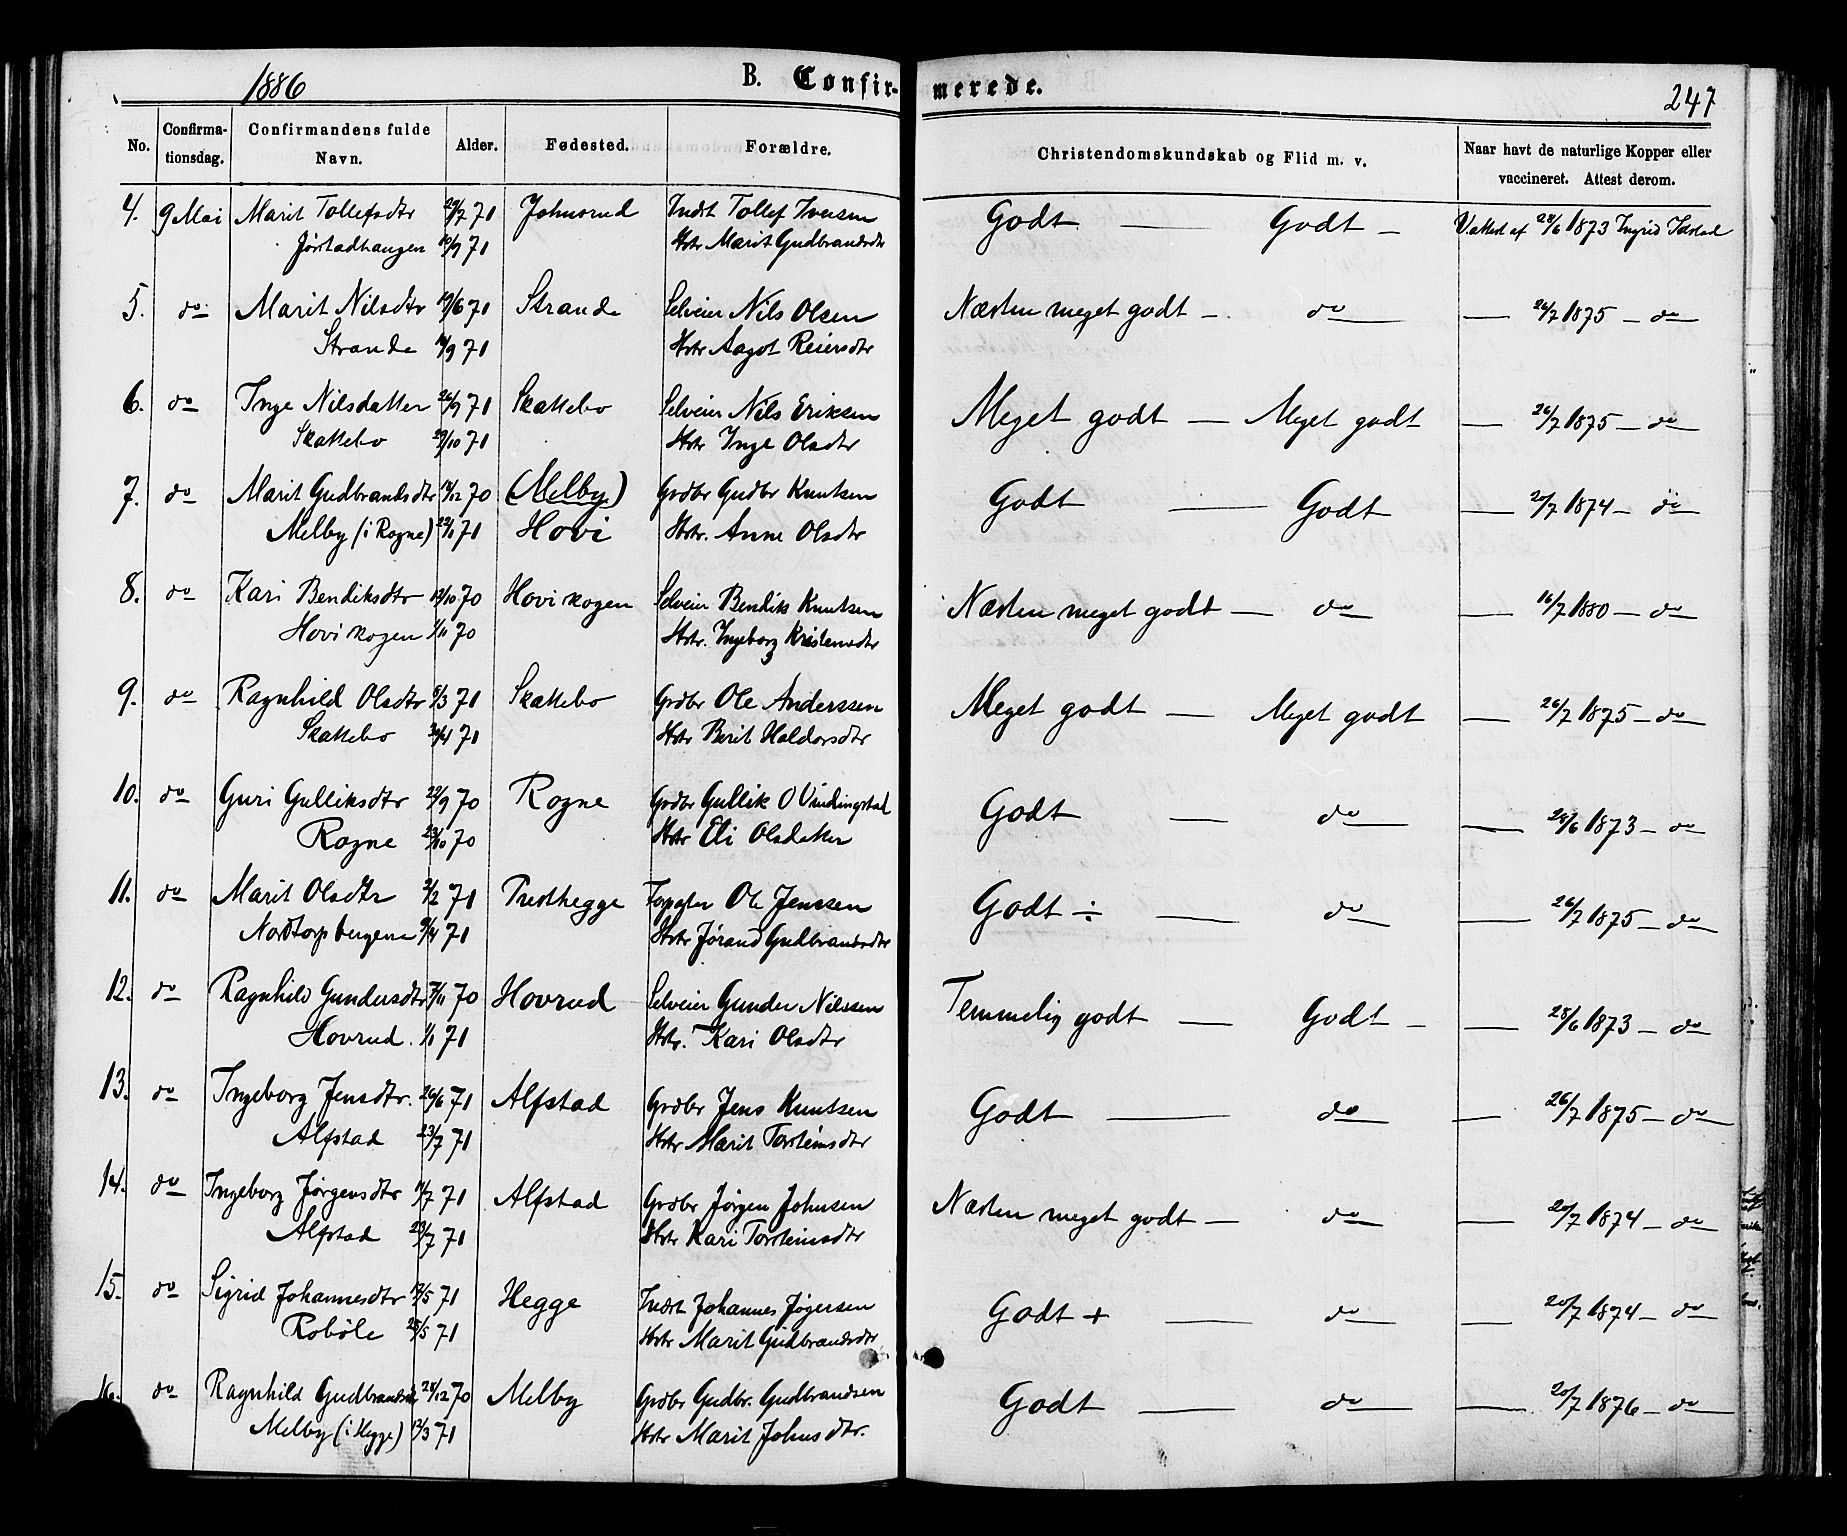 1886 B. Confir- merede. 247
No. Confirma-tionsdag. Confirmandens fulde Navn. Alder. Fødested. Forældre. Christendomskundskab og Flid m. v. Naar havt de naturlige Kopper eller vaccineret. Attest derom.
4. 9 Mai Marit Tollefsdtr 29/7 71 Johnsrud Indst Tollef Iversen Godt — Godt — Vattest af 28/6 1873 Ingrid
Jørstadhaugen 10/9 71 Hstr Marit Gudbrandsdtr
5. do Marit Nilsdtr 19/6 71 Strande Selveier Nils Olsen Næsten meget godt — do — 26/7 1875 — do
Strande /9 71 Hstr Aagot Reiersdtr
6. do Inge Nilsdatter 26/9 71 Skattebo Selveier Nils Eriksen Meget godt — Meget godt — 26/7 1875 — do
Skattebo 29/10 71 Hstr Inge Olsdtr
7. do Marit Gudbrandsdtr 14/12 70 (Melby) Grdbr Gudbr Knutsen Godt — Godt — 20/7 1874 — do
Melby (i Rogne) 22/1 71 Hovi Hstr. Anne Olsdtr
8. do Kari Bendiksdtr 12/10 70 Hoviskogen Selveier Bendik Knutsen Næsten meget godt — do — 16/7 1880 — do
Hoviskogen 1/11 70 Hstr. Ingeborg Kristensdtr
9. do Ragnhild Olsdtr 8/3 71 Skattebo Grdbr Ole Anderssen Meget godt — Meget godt — 26/7 1875 — do
Skattebo /4 71 Hstr Berit Haldorsdtr
10. do Guri Gulliksdtr 22/9 70 Rogne Grdbr Gullik O Vindingstad Godt — do — 28/6 1873 — do
Rogne 23/10 70 Hstr Eli Olsdatter
11. do Marit Olsdtr 2/2 71 Presthegge Ole Jenssen Godt ÷ — do — 26/7 1875 — do
Nordtorpbergene 9/4 71 Hstr Jørand Gudbrandsdtr
12. do Ragnhild Gundersdtr 7/11 70 Hovrud Selveier Gunder Nilssen Temmelig godt — Godt — — 28/6 1873 — do
Hovrud. 1/1 71 Hstr. Kari Olsdtr
13. do Ingeborg Jensdtr. 26/6 71 Alfstad Grdbr Jens Knutsen Godt — do — 26/7 1875 — do
Alfstad 23/7 71 Hstr Marit Torsteinsdtr
14. do Ingeborg Jørgensdtr /7 71 Alfstad Grdbr Jørgen Johnsen Næsten meget godt — do — 20/7 1874 — do
Alfstad 23/7 71 Hstr Kari Torsteinsdtr
15. do Sigrid Johannesdtr 17/5 71 Hegge Indst Johannes Jøgersen Godt + — do — 20/7 1874 — do
Robøle 28/5 71 Hstr Marit Gudbrandsdtr
16. do Ragnhild Gudbrandsdtr 28/12 70 Melby Grdbr Gudbr. Gudbrandsen Godt — do — 20/7 1876 — do
Melby (i Hegge) 12/3 71 Hstr Marit Johnsdtr.